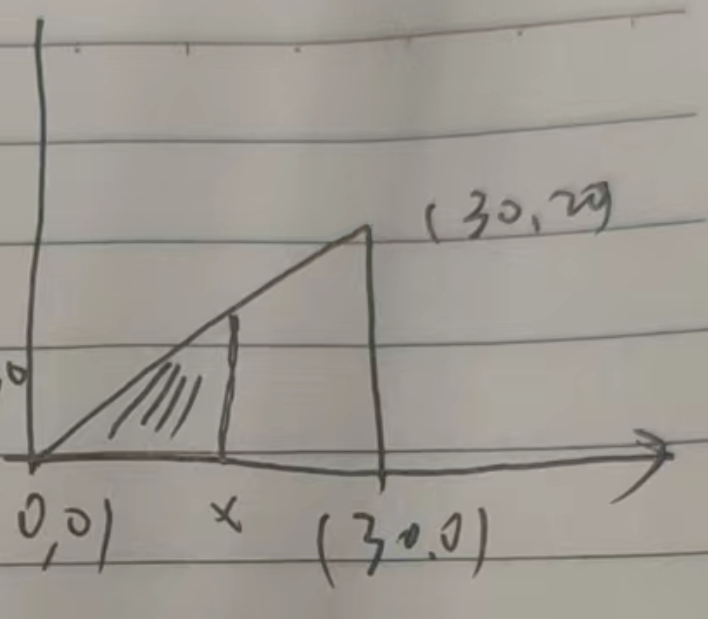 (30,20)
0
0,0)
x
(30,0)